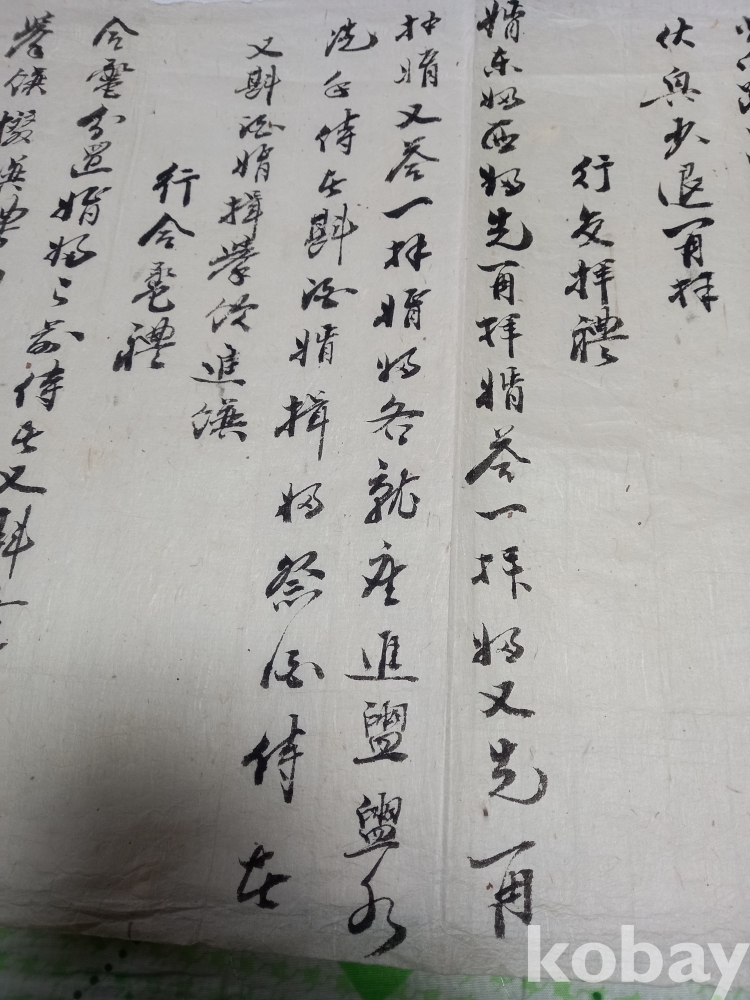 伏興少退再拜
行交拜禮
婿東婦西婦先再拜婿荅一拜婦又先再
拜婿又荅一拜婿婦各就座進盥盥水
洗手侍者斟酒婿揖婦祭酒侍者
又斟酒婿揖擧飮進饌
行合巹禮
合巹分置婿婦之前侍者又斟
擧饌撤饌
kobay